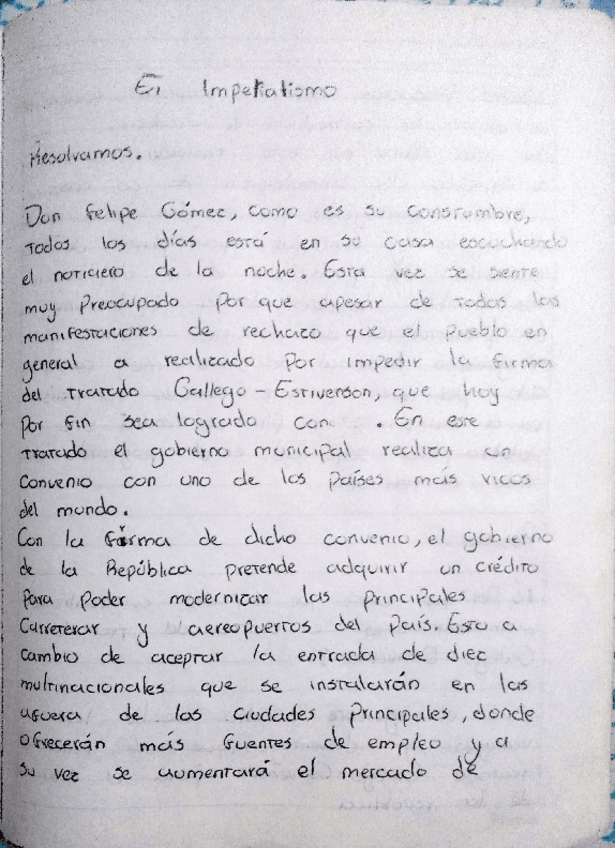 El Imperialismo
Resolvamos.
Don Felipe Gómez, como es su construmbre,
todos los días está en su casa escuchando
el noticiero de la noche. Esta vez se siente
muy Preocupado Por que apesar de todas las
manifestaciones de rechazo que el Pueblo en
general a realizado Por impedir la firma
del tratado Gallego - Estiverson, que hoy
Por fin sea logrado con . En este
tratado el gobierno municipal realiza un
Convenio con uno de los Países más vicos
del mundo.
Con la firma de dicho convenio, el gobierno
de la República pretende adquirir un crédito
Para Poder modernizar las Principales
Carreterar y aereopuertos del País. Esto a
cambio de aceptar la entrada de diez
multinacionales que se instalarán en las
afuera de las ciudades Principales, donde
ofrecerán más fuentes de empleo y a
su vez se aumentará el mercado de